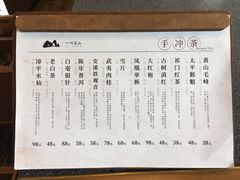 手冲茶
黄山毛峰 38元
太平猴魁 48元
祁门红茶 38元
古树滇红
大红袍
凤凰单枞 68元
雪片 68元
武夷肉桂 78元
安溪铁观音 58元
陈年普洱 58元
白毫银针
老白茶 48元
漳平水仙 98元